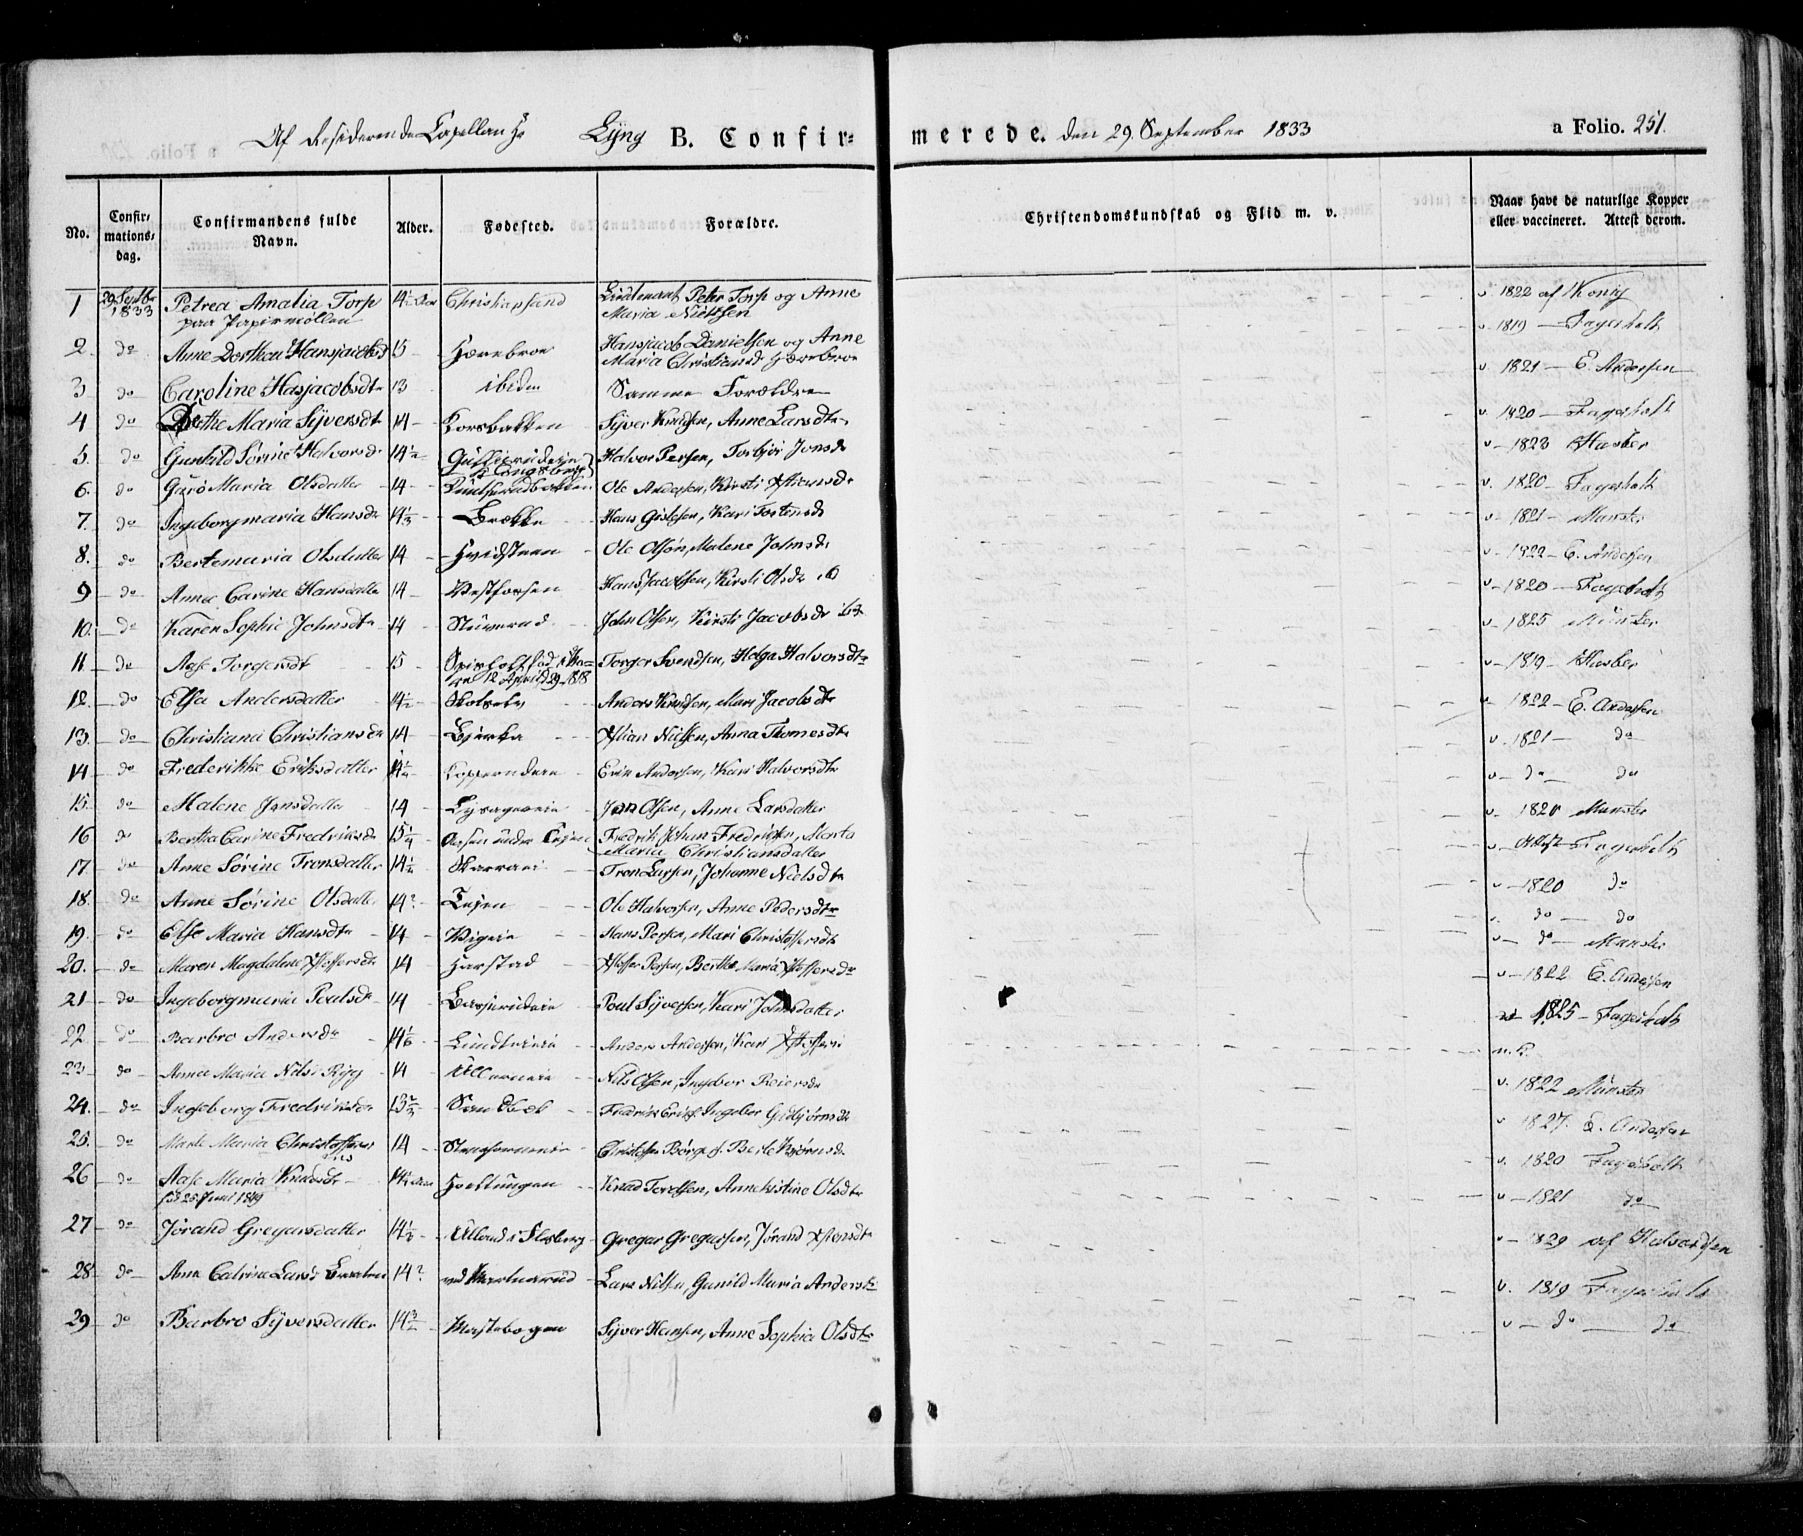 Af residerende Capellan Hr Lÿng B. Confirmerede. den 29 September 1833 a Folio. 251.
No. Confirmations, dag. Confirmandens fulde Navn. Alder. Fødested. Forældre. Christendomskundskab og Flid m. v. Naar havt de naturlige Kopper eller vaccineret. Attest derom.
1 29 Septbr 1833 Petrea Amalia Torp 14½ Christiansand Lieutenant Peter Torp og Anne v 1822 af König
paa Papirmøllen Maria Nielsen
2. do Anne Dorthea Hansjacobsd 15 Horebroe Hansjacob Danielsen og Anne v 1819 — Fagerholt
Maria Christiansd Horebroe
3 do Caroline Hasjacobsdtr 13 ibidem Samme Forældre v 1821 — E. Andersen
4 do Dorthe Maria Sÿversdtr 14 Korsbakken Sÿver Knudsen, Anne Larsdtr v 1820 — Fagerholt
5. do Gunhild Sørine Halvorsdr 14½ Halvor Persen, Torbjør Jonsdr v — 1823 Hasber
6. do Guro Maria Olsdatter 14 Ole Andersen, Kirsti Xstiansdr v. 1820 — Fagerholt
7. do Ingeborgmaria Hansdr 14⅓ Brække Hans Gislesen, Kari Torstensdr v. 1821 — Munster
8. do Bertemaria Olsdatter 14 Hvidsteen Ole Olsøn, Malene Johnsdr v — 1822 — E. Andersen
9 do Annee Carine Hansdatter 14 Vestfossen Hans Jacobsen, Kirsti Olsdr ib v — 1820 — Fagerholt
10. do Karen Sophie Johnsdtr 14 Stuverud John Olsen, Kirsti Jacobsdr v — 1825 Münster
11 do Aase Torgersdt 15 12 April 1818 Torger Svendsen, Helga Halvorsdtr v — 1819 — Hasber
12. do Elsa Andersdatter 14½ Anders Knudsen, Mari Jacobsdtr v 1822 — E. Andersen
13. do Christiana Christiansdr 14 Bjerke Xstian Nielsen, Anna Thomesdtr v — 1821 — do
14 do Frederikke Eriksdatter 14½ Erik Andersen, Kari Halvorsdtr v — do do
15. do Malene Jansdatter 14 Jan Olsen, Anne Larsdatter v 1820 Munster
16 do Bertha Carine Fredriksdr 15¼ Fredrik Johan Fredrigsen, Marta v — Attest — Fagerholt
Maria Christiansdatter
17 do Anne Sørine Tronsdatter 14½ Tron Larsen, Johanne Nielsdtr v — 1820 do
18. do Anne Sørine Olsdatter 14? Tejen Ole Halvorsen, Anne Pedersdtr v. do — do
19. do Else Maria Hansdtr 14 Hans Persen, Mari Christoffersdtr v — do — Munster
20. do Maren Magdalene Xstoffersdr 14 Harstad Xstoffer Persen, Berthe Maria Xstoffersdr v — 1822 E. Andersen
21 do Ingeborgmaria Poulsdr 14 Poul Sÿversen, Kari Johnsdatter 1825 — Fagerholt
22 do Barbro Andersdr 14⅙ Anders Andersen, Kari Xstoffers n. K.
23 do Anna Maria Nils 14 Nils Olsen, Ingebor Reiersdr v. 1822 Münster
24. do Ingeborg Fredriksdr 13 Sandbæk Fredrik Eriks. Ingebor Gulbjørnsdr v 1827. E. Andersen
25. do Marte Maria Christoffers 14 Christoffer Børges. Berte Bjørnsdr v. 1820 Fagerholt
26 do Aase Maria Knudsdtr 14½ Knud Tordsen, Annekistine Olsdtr v — 1821 do
fød 25 Juni 1819
27 do Jørand Gregarsdatter 14 Ullands Flesberg Gregar Gregarsen, Jørand Xstensdtr v — 1829 af Halvordsen
28 do Ane Catrine Larsd 14? Lars Nilsen, Gunild Maria Andersd v. 1819 Fagerholt
29 do Barbro Sÿversdatter 14 Mastebogen Sÿver Hansen, Anne Sophia Olsdtr v — do — do